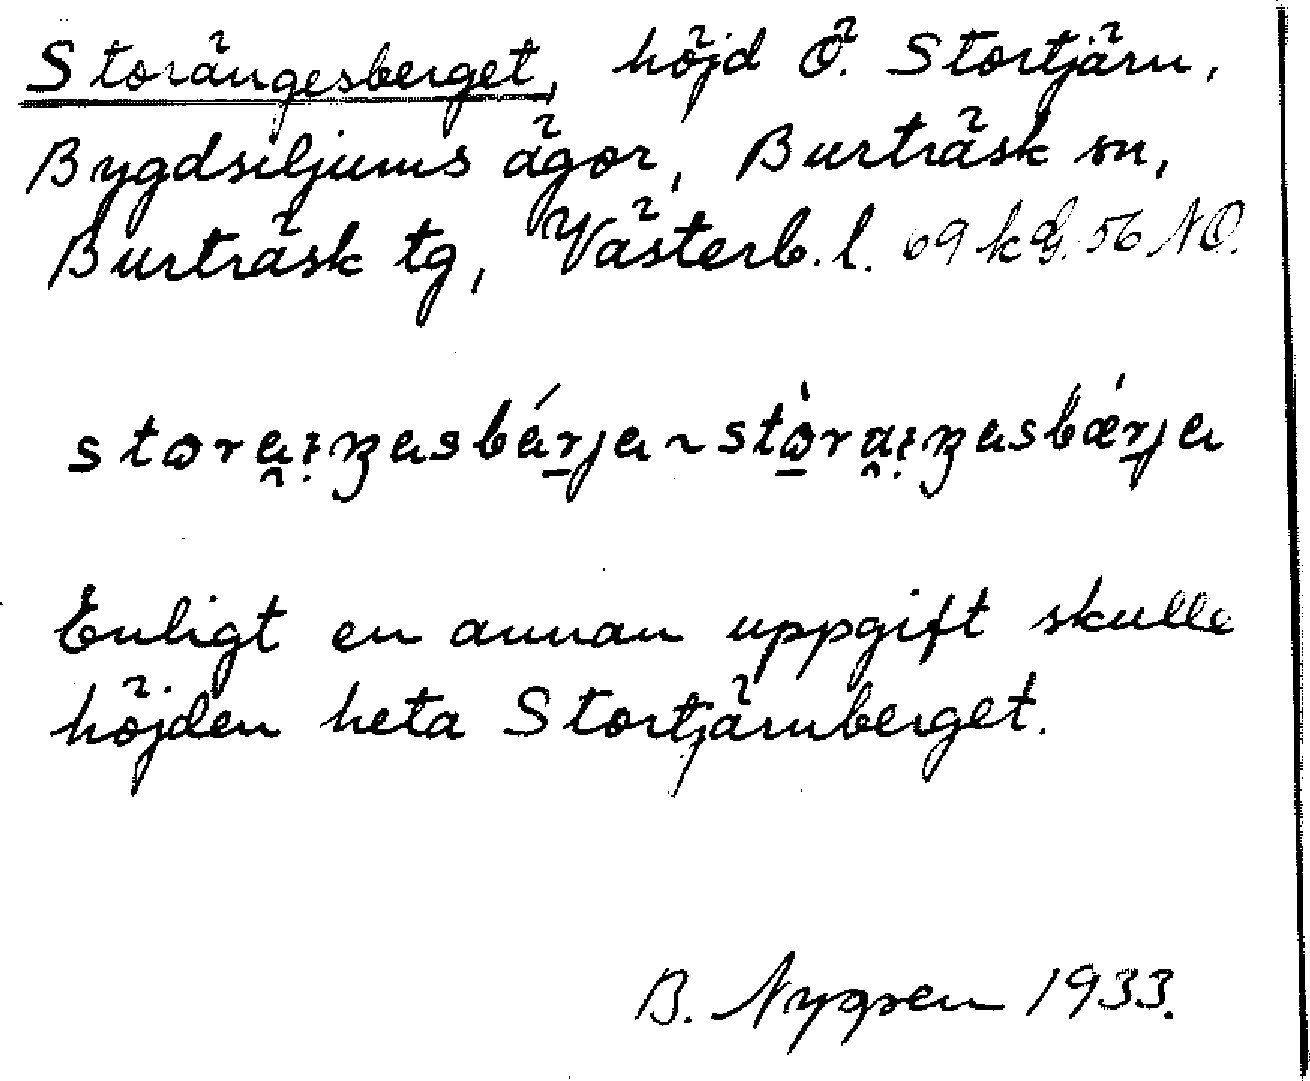 Storängesberget, höjd Ö. Stortjärn,
Bygdsiljums ägor, Burträsk sn,
Burträsk tg, Västerb. l. 69 kg. 56 NO.
Enligt en annan uppgift skulle
höjden heta Stortjärnberget.
B. Nygren 1933.